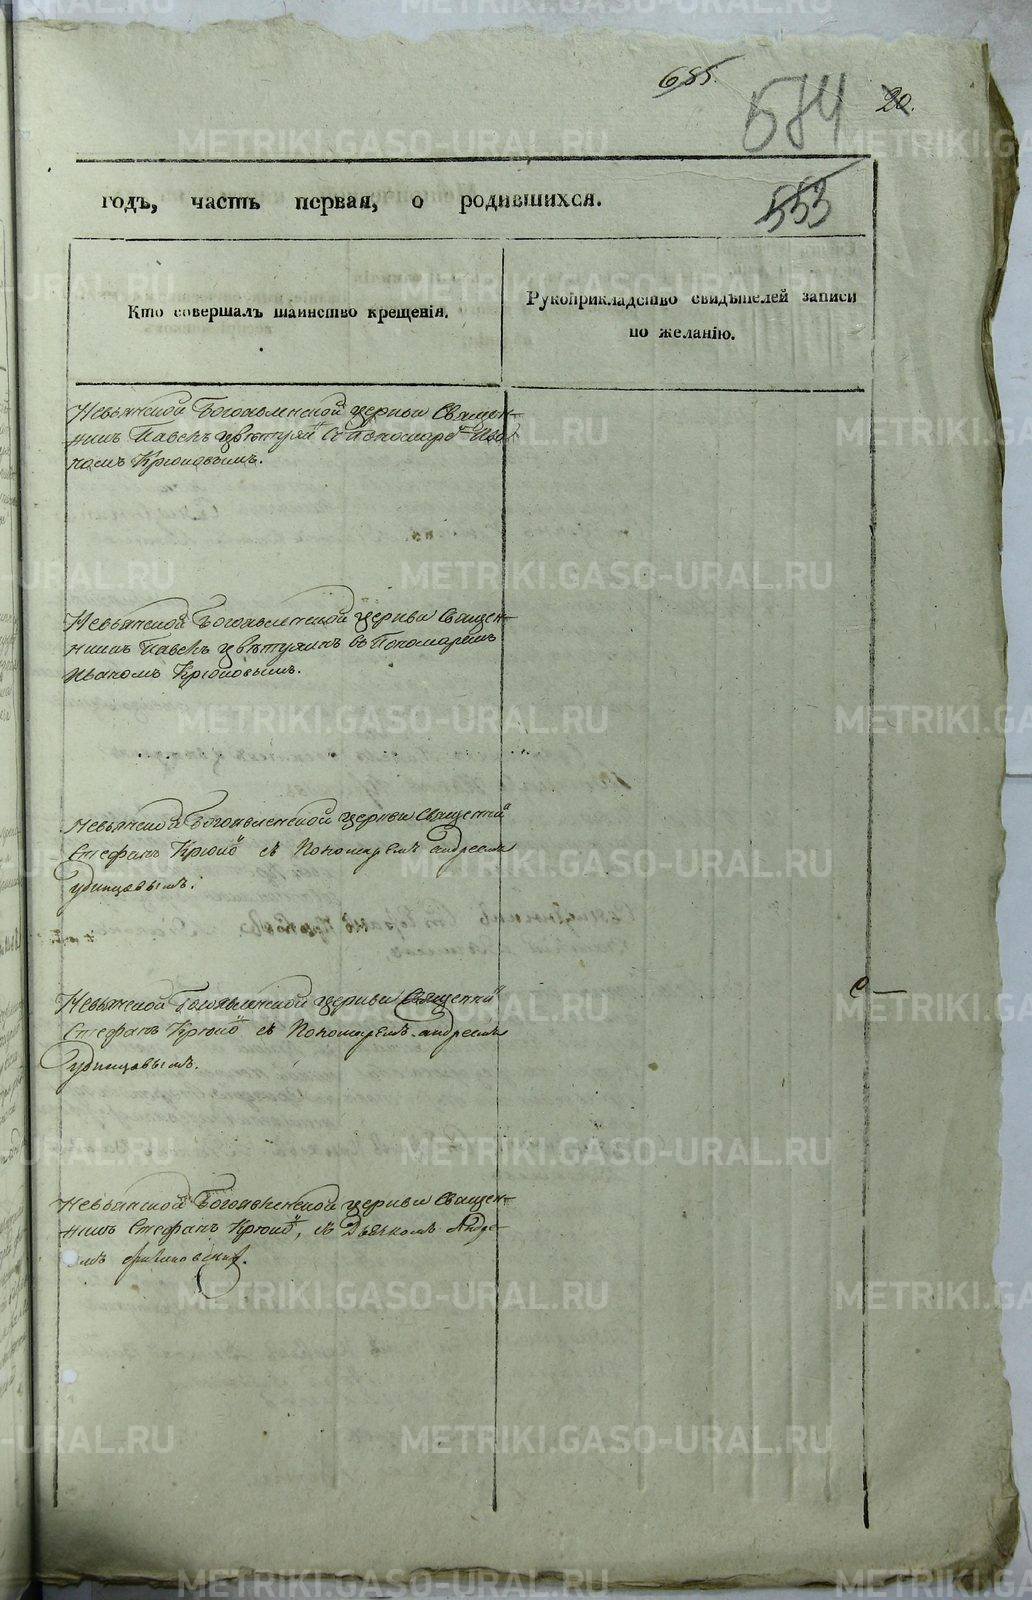 685.
584
20.
553
годъ, часть первая, о родившихся.
Кто совершалъ таинство крещенія.
Рукоприкладство свидѣтелей записи
по желанію.
Невьянской Богоявленской церкви Священ-
никъ Павелъ Цвѣтухи съ Пономаре Ива-
номъ Крюковымъ.
Невьянской Богоявленской церкви Священ-
никъ Павелъ Цвѣтухинъ съ Пономаремъ
Иваномъ Крюковымъ.
Невьянской Богоявленской церкви Священни
Стефанъ Крюко съ Пономаремъ Андреемъ
Удинцовымъ.
Невьянской Богоявленской церкви Священни
Стефанъ Крюко съ Пономаремъ Андреемъ
Удинцовымъ.
Невьянской Богоявленской церкви Священ-
никъ Стефанъ Крюко, съ Дьячкомъ Андре-
METRIKI.GASO-URAL.RU